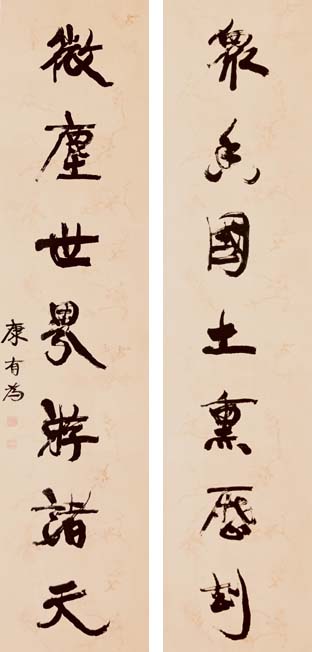 衆香國土熏歷劫
微塵世界游諸天
康有為